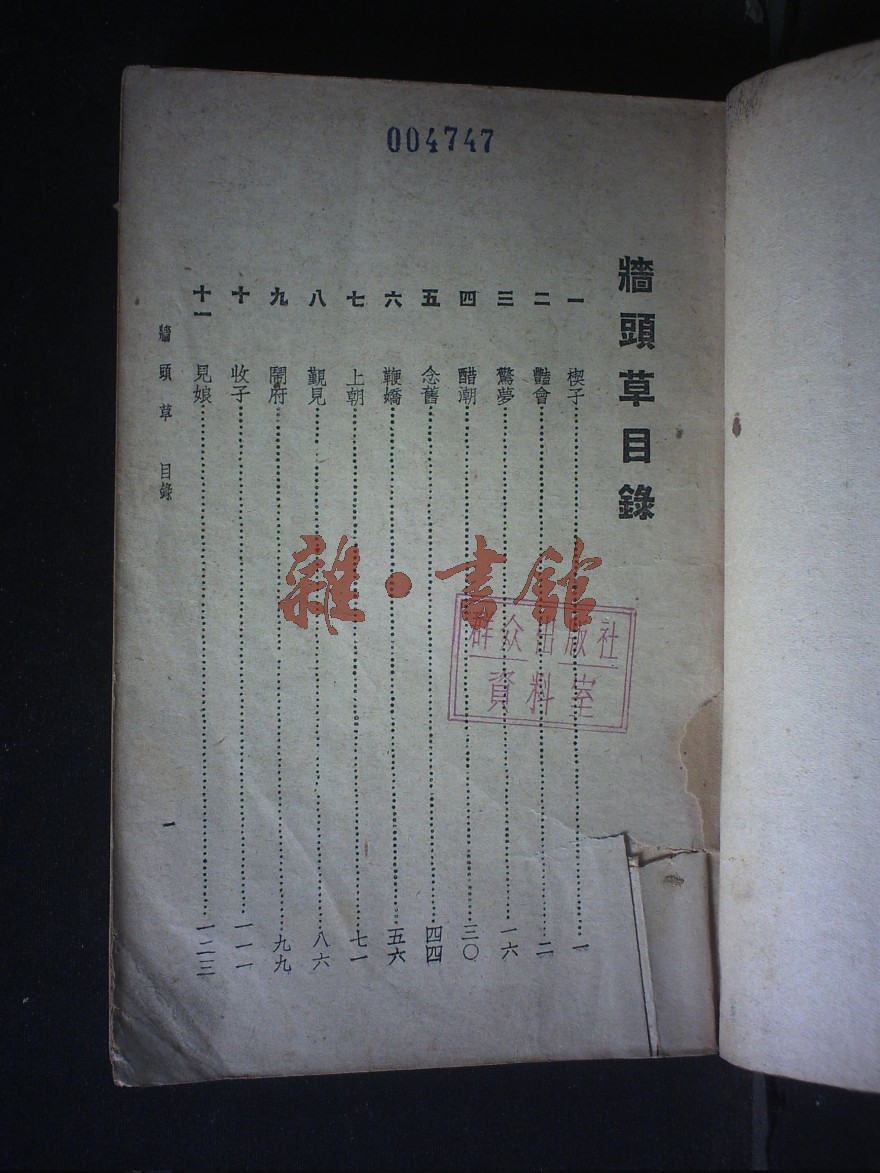 004747
牆頭草目錄
一 楔子 一
二 豔會 二
三 驚夢 一六
四 醋潮 三〇
五 念舊 四四
六 鞭嬌 五六
七 上朝 七一
八 觀見 八六
九 鬧府 九九
十 收子 一一一
十一 見娘 一二三
牆頭草 目錄
一
雜·書館
群众出版社
資料室